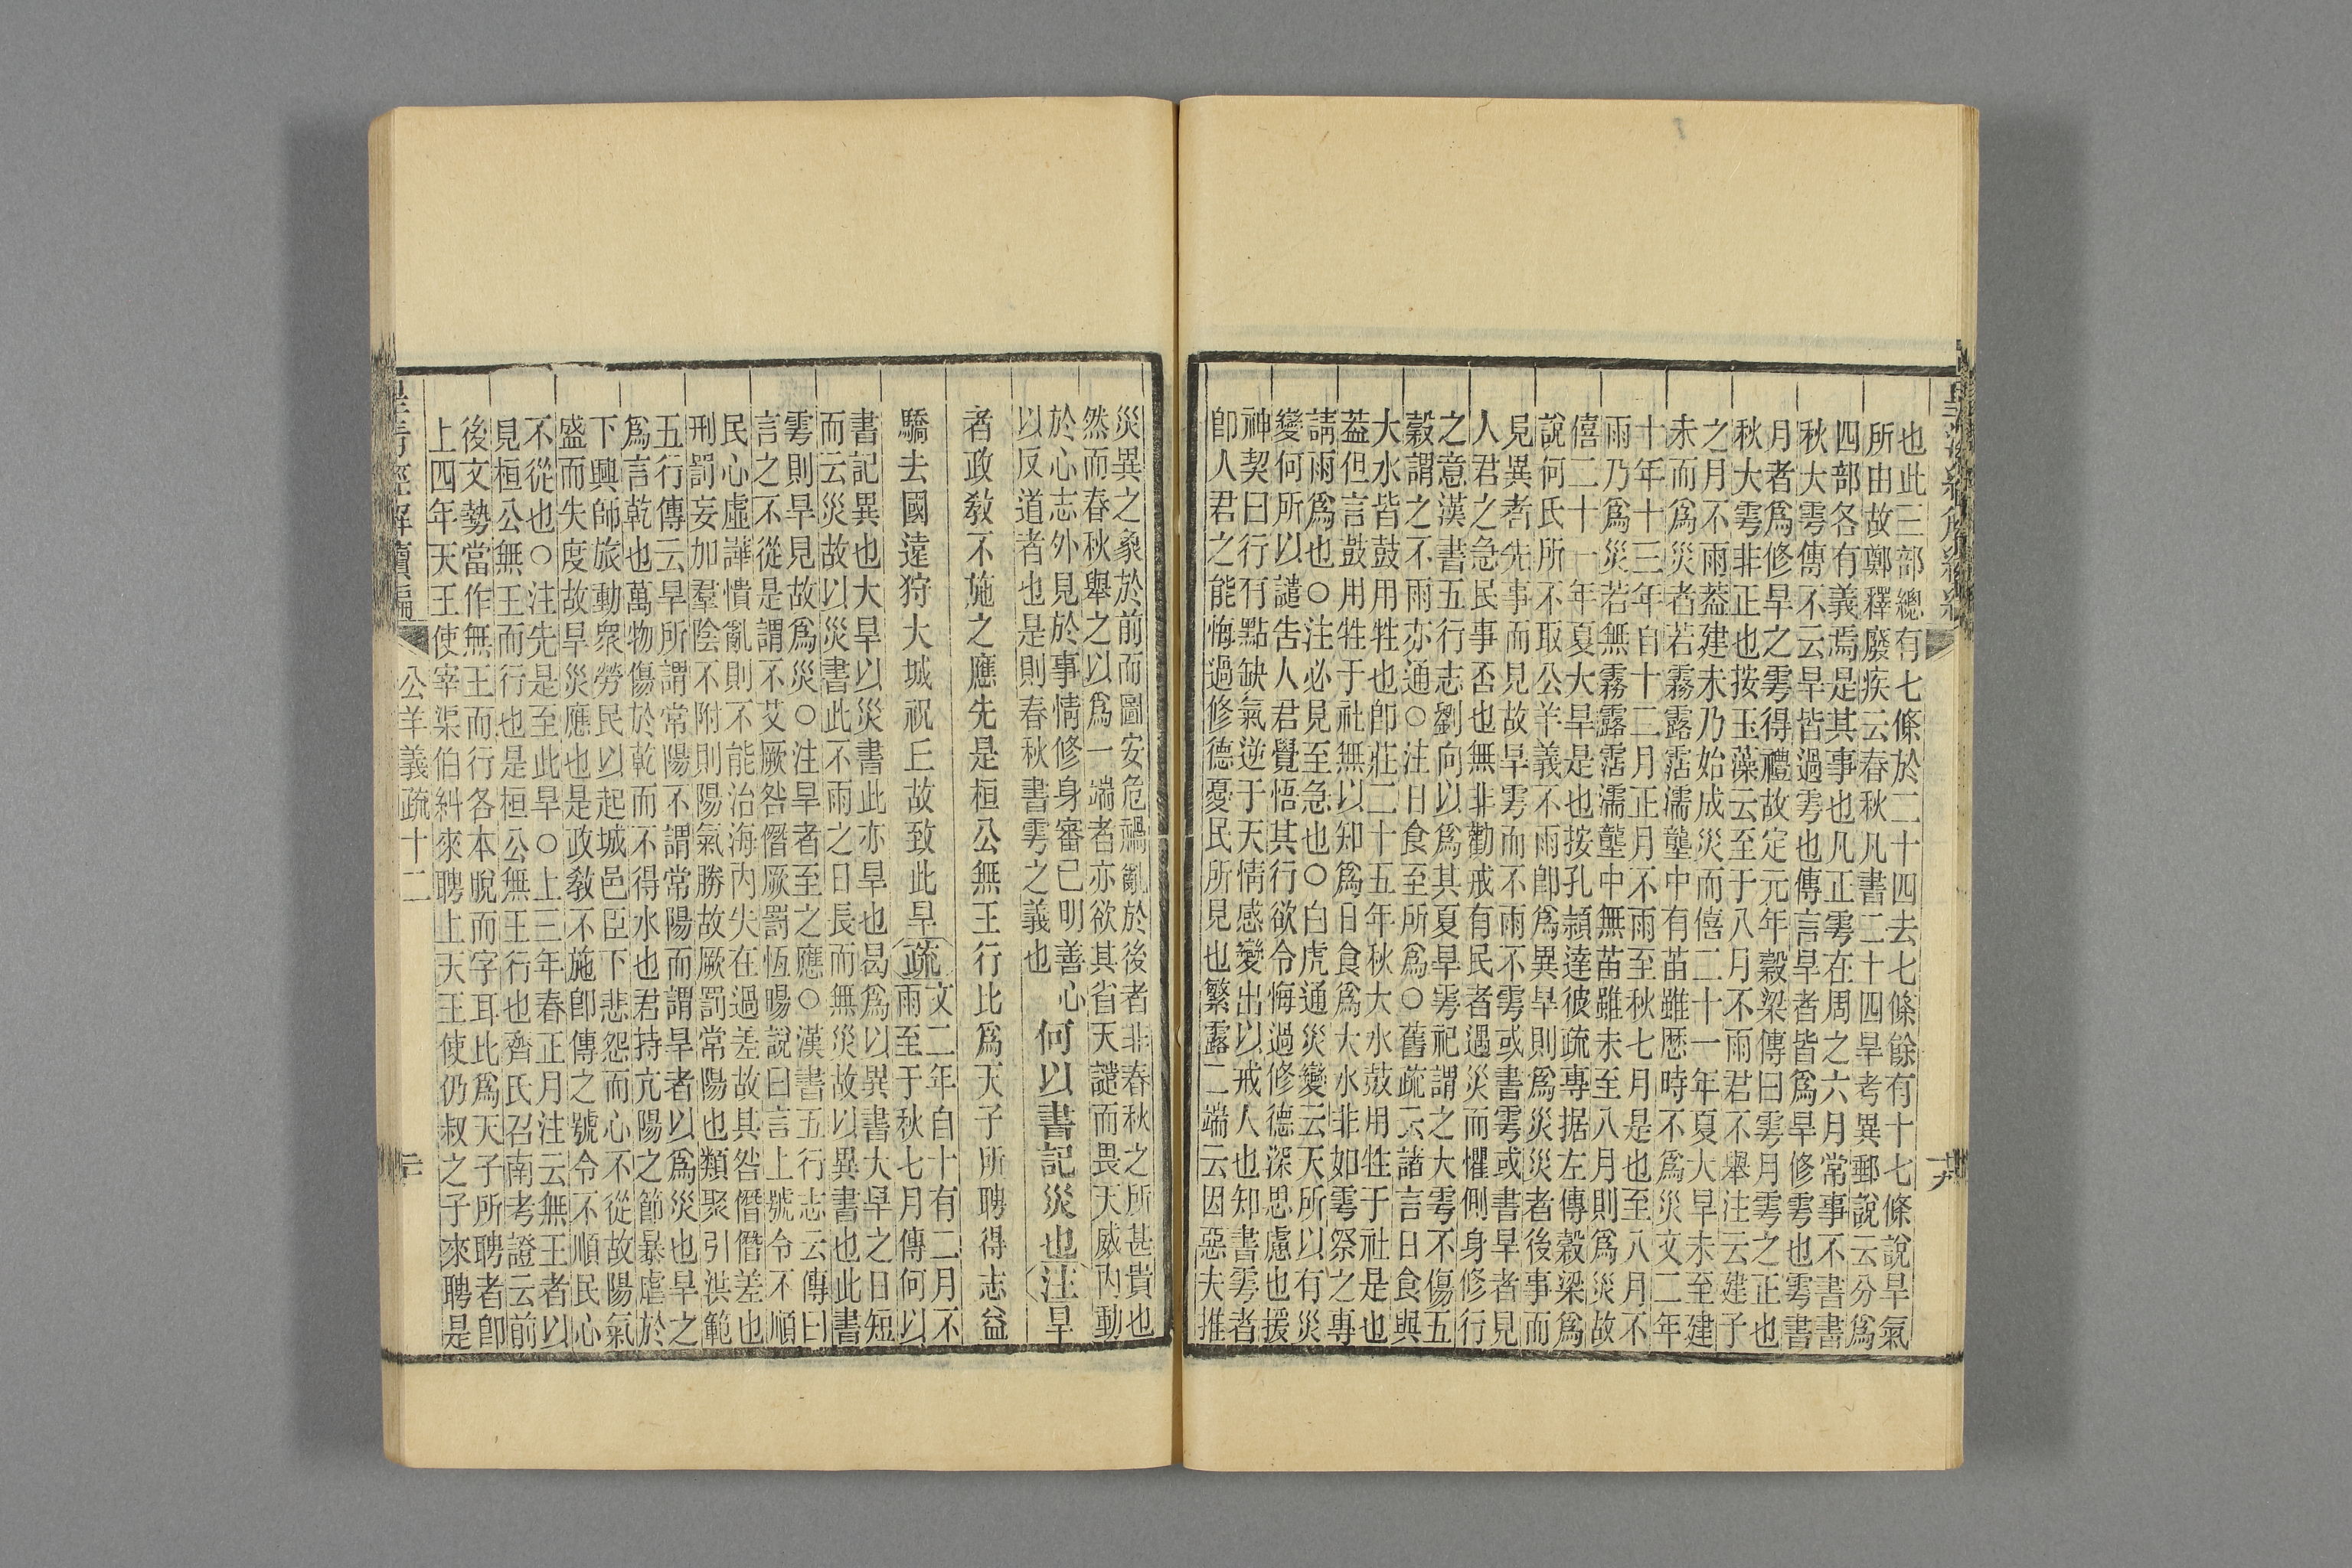 也此三部總有七條於二十四去七條餘有十七條說旱氣
所由故鄭釋廢疾云春秋凡書二十四旱考異郵說云分爲
四部各有義焉是其事也凡正雩在周之六月常事不書書
秋大雩傳不云旱皆過雩也傳言旱者皆爲旱修雩也雩書
月者爲修旱之雩得禮故定元年穀梁傳曰雩月雩之正也
秋大雩非正也按玉藻云至于八月不雨君不舉注云建子
之月不雨葢建未乃始成災而僖二十一年夏大旱未至建
未而爲災者若霧露霑濡壟中有苗雖歷時不爲災文二年
十年十三年自十二月正月不雨至秋七月是也至八月不
雨乃爲災若無霧露霑濡壟中無苗雖未至八月則爲災故
僖二十一年夏大旱是也按孔頴達彼疏專据左傳穀梁爲
說何氏所不取公羊義不雨卽爲異旱則爲災災者後事而
見異者先事而見故旱雩而不雨不雩或書雩或書旱者見
人君之急民事否也無非勸戒有民者遇災而懼側身修行
之意漢書五行志劉向以爲其夏旱雩祀謂之大雩不傷五
穀謂之不雨亦通○注日食至所爲○舊疏云諸言日食與
大水皆鼓用牲也卽莊二十五年秋大水鼓用牲于社是也
葢但言鼓用牲于社無以知爲日食爲大水非如雩祭之專
請雨爲也○注必見至急也○白虎通災變云天所以有災
變何所以譴告人君覺悟其行欲令悔過修德深思慮也援
神契曰行有點缺氣逆于天情感變出以戒人也知書雩者
卽人君之能悔過修德憂民所見也繁露二端云因惡夫推
災異之象於前而圖安危禍亂於後者非春秋之所甚貴也
然而春秋舉之以爲一端者亦欲其省天譴而畏天威內動
於心志外見於事情修身審己明善心
以反道者也是則春秋書雩之義也
何以書記災也注旱
者政敎不施之應先是桓公無王行比爲天子所聘得志益
驕去國遠狩大城祝丘故致此旱疏
文二年自十有二月不
雨至于秋七月傳何以
書記異也大旱以災書此亦旱也曷爲以異書大旱之日短
而云災故以災書此不雨之日長而無災故以異書也此書
雩則旱見故爲災○注旱者至之應○漢書五行志云傳曰
言之不從是謂不艾厥咎僭厥罰恆暘說曰言上號令不順
民心虛譁憒亂則不能治海內失在過差故其咎僭僭差也
刑罰妄加羣陰不附則陽氣勝故厥罰常陽也類聚引洪範
五行傳云旱所謂常陽不謂常陽而謂旱者以爲災也旱之
爲言乾也萬物傷於乾而不得水也君持亢陽之節暴虐於
下興師旅動衆勞民以起城邑臣下悲怨而心不從故陽氣
盛而失度故旱災應也是政敎不施卽傳之號令不順民心
不從也○注先是至此旱○上三年春正月注云無王者以
見桓公無王而行也是桓公無王行也齊氏召南考證云前
後文勢當作無王而行各本脫而字耳此爲天子所聘者卽
上四年天王使宰渠伯糾來聘上天王使仍叔之子來聘是
公羊義疏十二